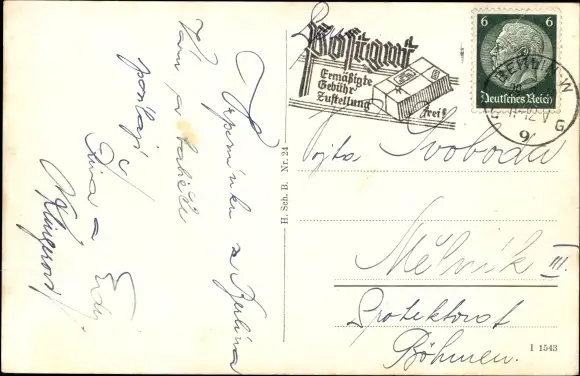 Vzpomínku z Berlína
Vám a
posílají
a Edi
Klingerovi
H. Sch. B. Nr. 24
Postgut
Ermäßigte
Gebühr
Zustellung
frei!
6 6
Deutsches Reich
BERLIN W
9
G
Vojta Svoboda
Mělník III.
Protektorat
Böhmen.
I 1543